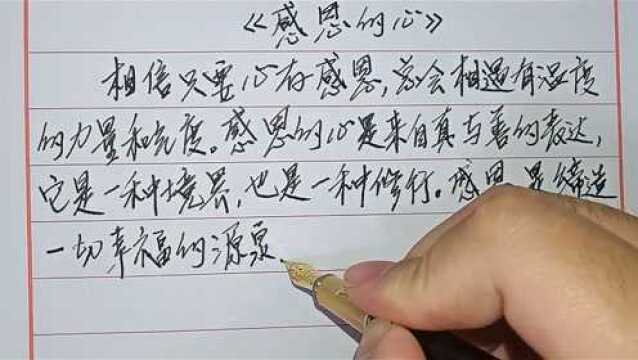 《感恩的心》
相信只要心存感恩,总会相遇有温度
的力量和光度。感恩的心是来自真与善的表达,
它是一种境界,也是一种修行。感恩是缔造
一切幸福的源泉